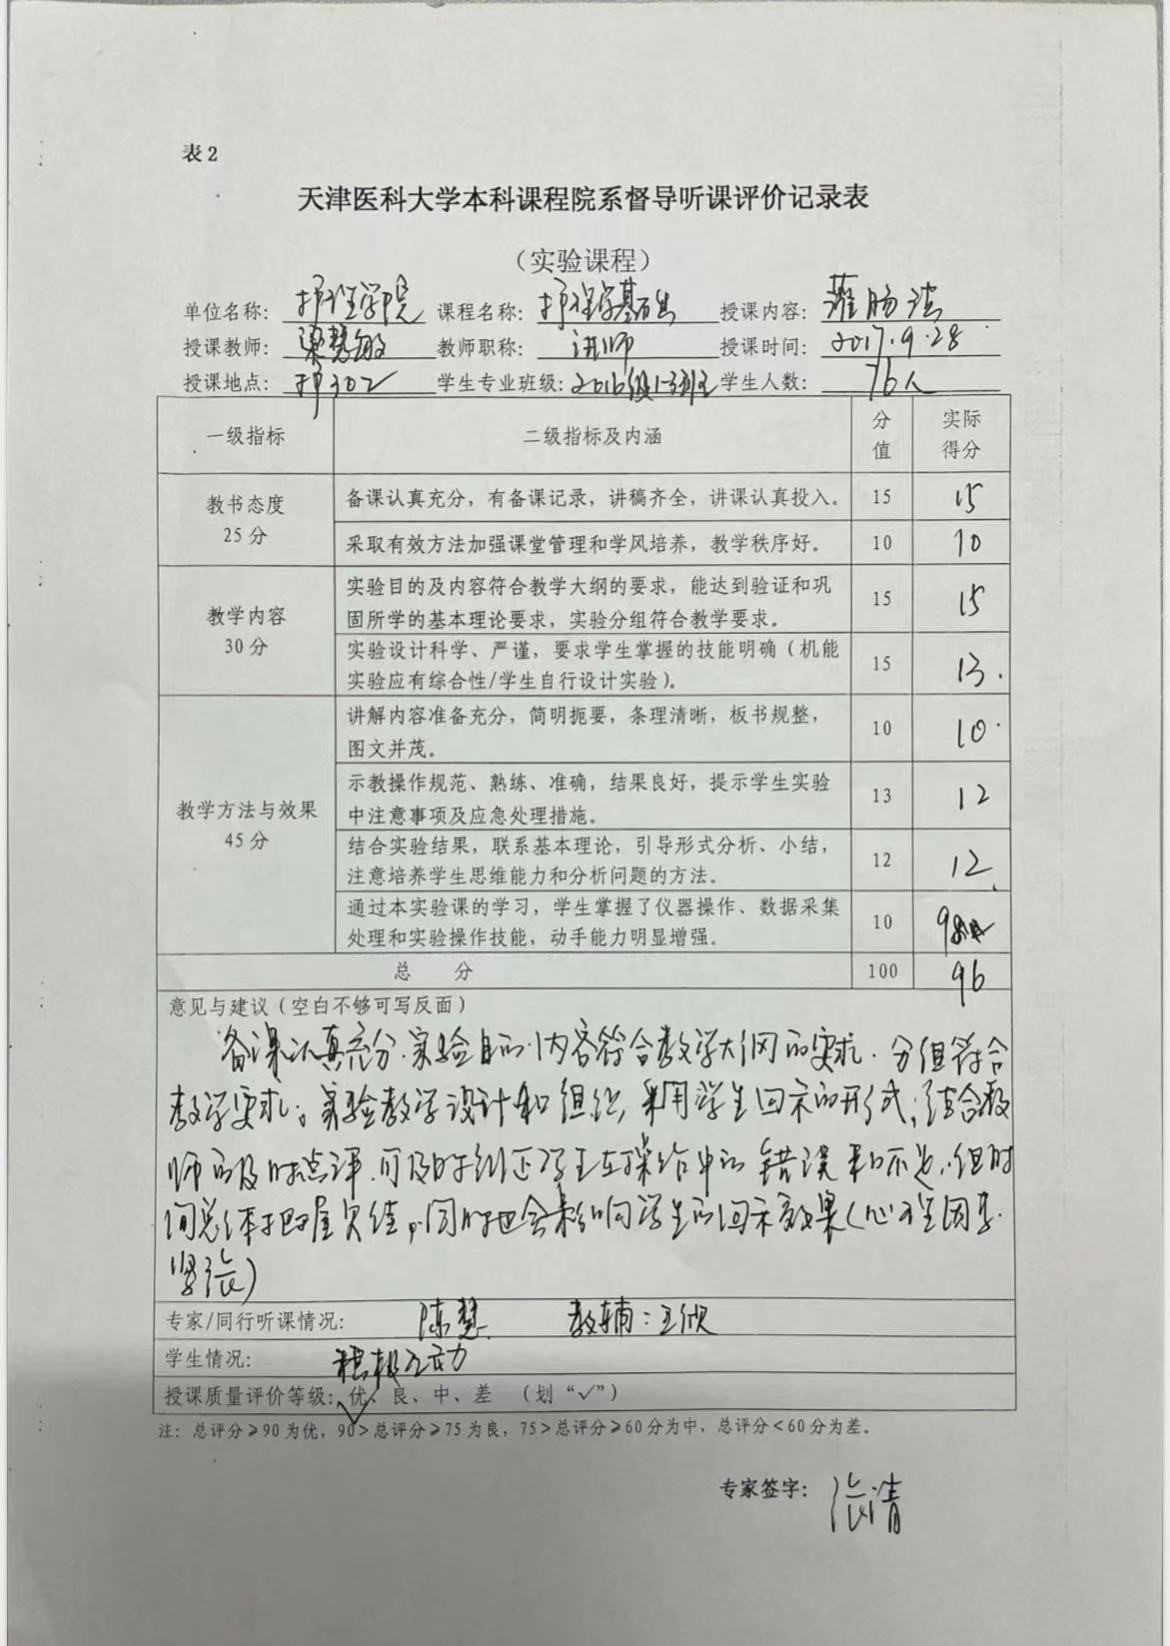 表2
天津医科大学本科课程院系督导听课评价记录表
（实验课程）
单位名称：护理学院 课程名称：护理学基础 授课内容：灌肠法
授课教师：梁慧敏 教师职称：讲师 授课时间：2017.9.28
授课地点：护302 学生专业班级：2016级1-3班 学生人数：76人
一级指标 二级指标及内涵 分值 实际得分
教书态度 25分
备课认真充分，有备课记录，讲稿齐全，讲课认真投入。 15 15
采取有效方法加强课堂管理和学风培养，教学秩序好。 10 10
教学内容 30分
实验目的及内容符合教学大纲的要求，能达到验证和巩
固所学的基本理论要求，实验分组符合教学要求。 15 15
实验设计科学、严谨，要求学生掌握的技能明确（机能
实验应有综合性/学生自行设计实验）。 15 13.
教学方法与效果 45分
讲解内容准备充分，简明扼要，条理清晰，板书规整，
图文并茂。 10 10
示教操作规范、熟练、准确，结果良好，提示学生实验
中注意事项及应急处理措施。 13 12
结合实验结果，联系基本理论，引导形式分析、小结，
注意培养学生思维能力和分析问题的方法。 12 12
通过本实验课的学习，学生掌握了仪器操作、数据采集
处理和实验操作技能，动手能力明显增强。 10 9
总 分 100 96
意见与建议（空白不够可写反面）
备课认真充分.实验目的.内容符合教学大纲的要求.分组符合
教学要求。实验教学设计和组织,采用学生回示的形式,结合教
师的及时点评.可及时纠正学生在操作中的错误和不足.但时
间总体把握欠佳,同时也会影响学生的回示效果(心理因素.
紧张)
专家/同行听课情况： 陈慧 教辅：王欣
学生情况： 积极互动
授课质量评价等级：优、良、中、差 （划“√”）
注：总评分≥90为优，90>总评分≥75为良，75>总评分≥60分为中，总评分<60分为差。
专家签字：张清